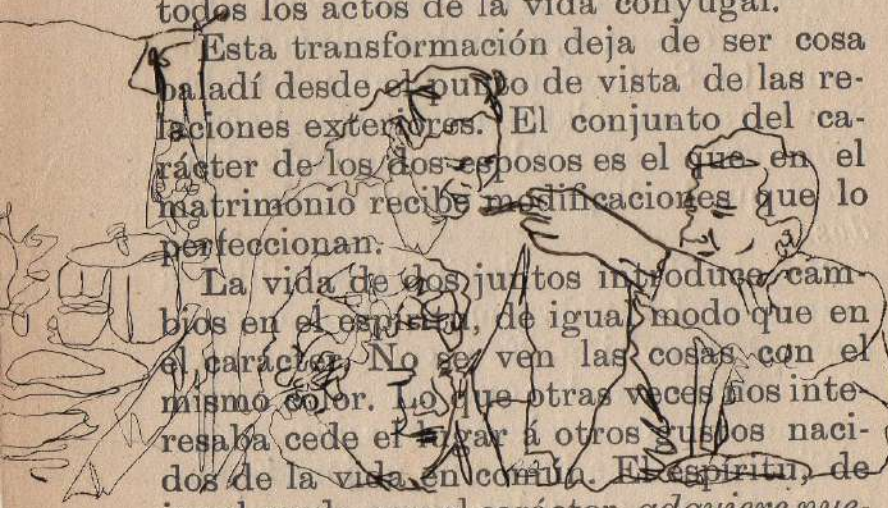 todos los actos de la vida conyugal.
Esta transformación deja de ser cosa
baladí desde el punto de vista de las re-
laciones exteriores. El conjunto del ca-
rácter de los dos esposos es el que en el
matrimonio recibe modificaciones que lo
perfeccionan.
La vida de dos juntos introduce cam-
bios en el espíritu, de igual modo que en
el carácter. No se ven las cosas con el
mismo color. Lo que otras veces nos inte-
resaba cede el lugar á otros gustos naci-
dos de la vida en común. El espíritu, de
carácter adquiere nue-